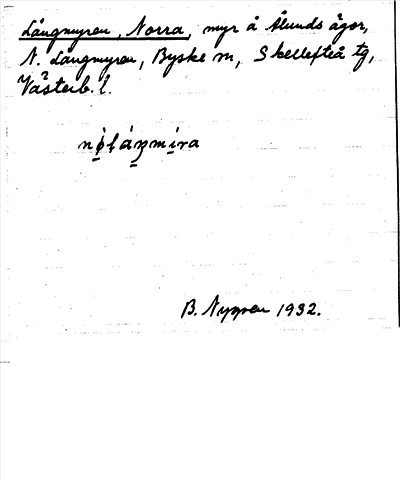 Långmyren, Norra, myr å Ålunds ägor,
N. Långmyren, Byske sn, Skellefteå tg,
Västerb. l.
B. Nygren 1932.